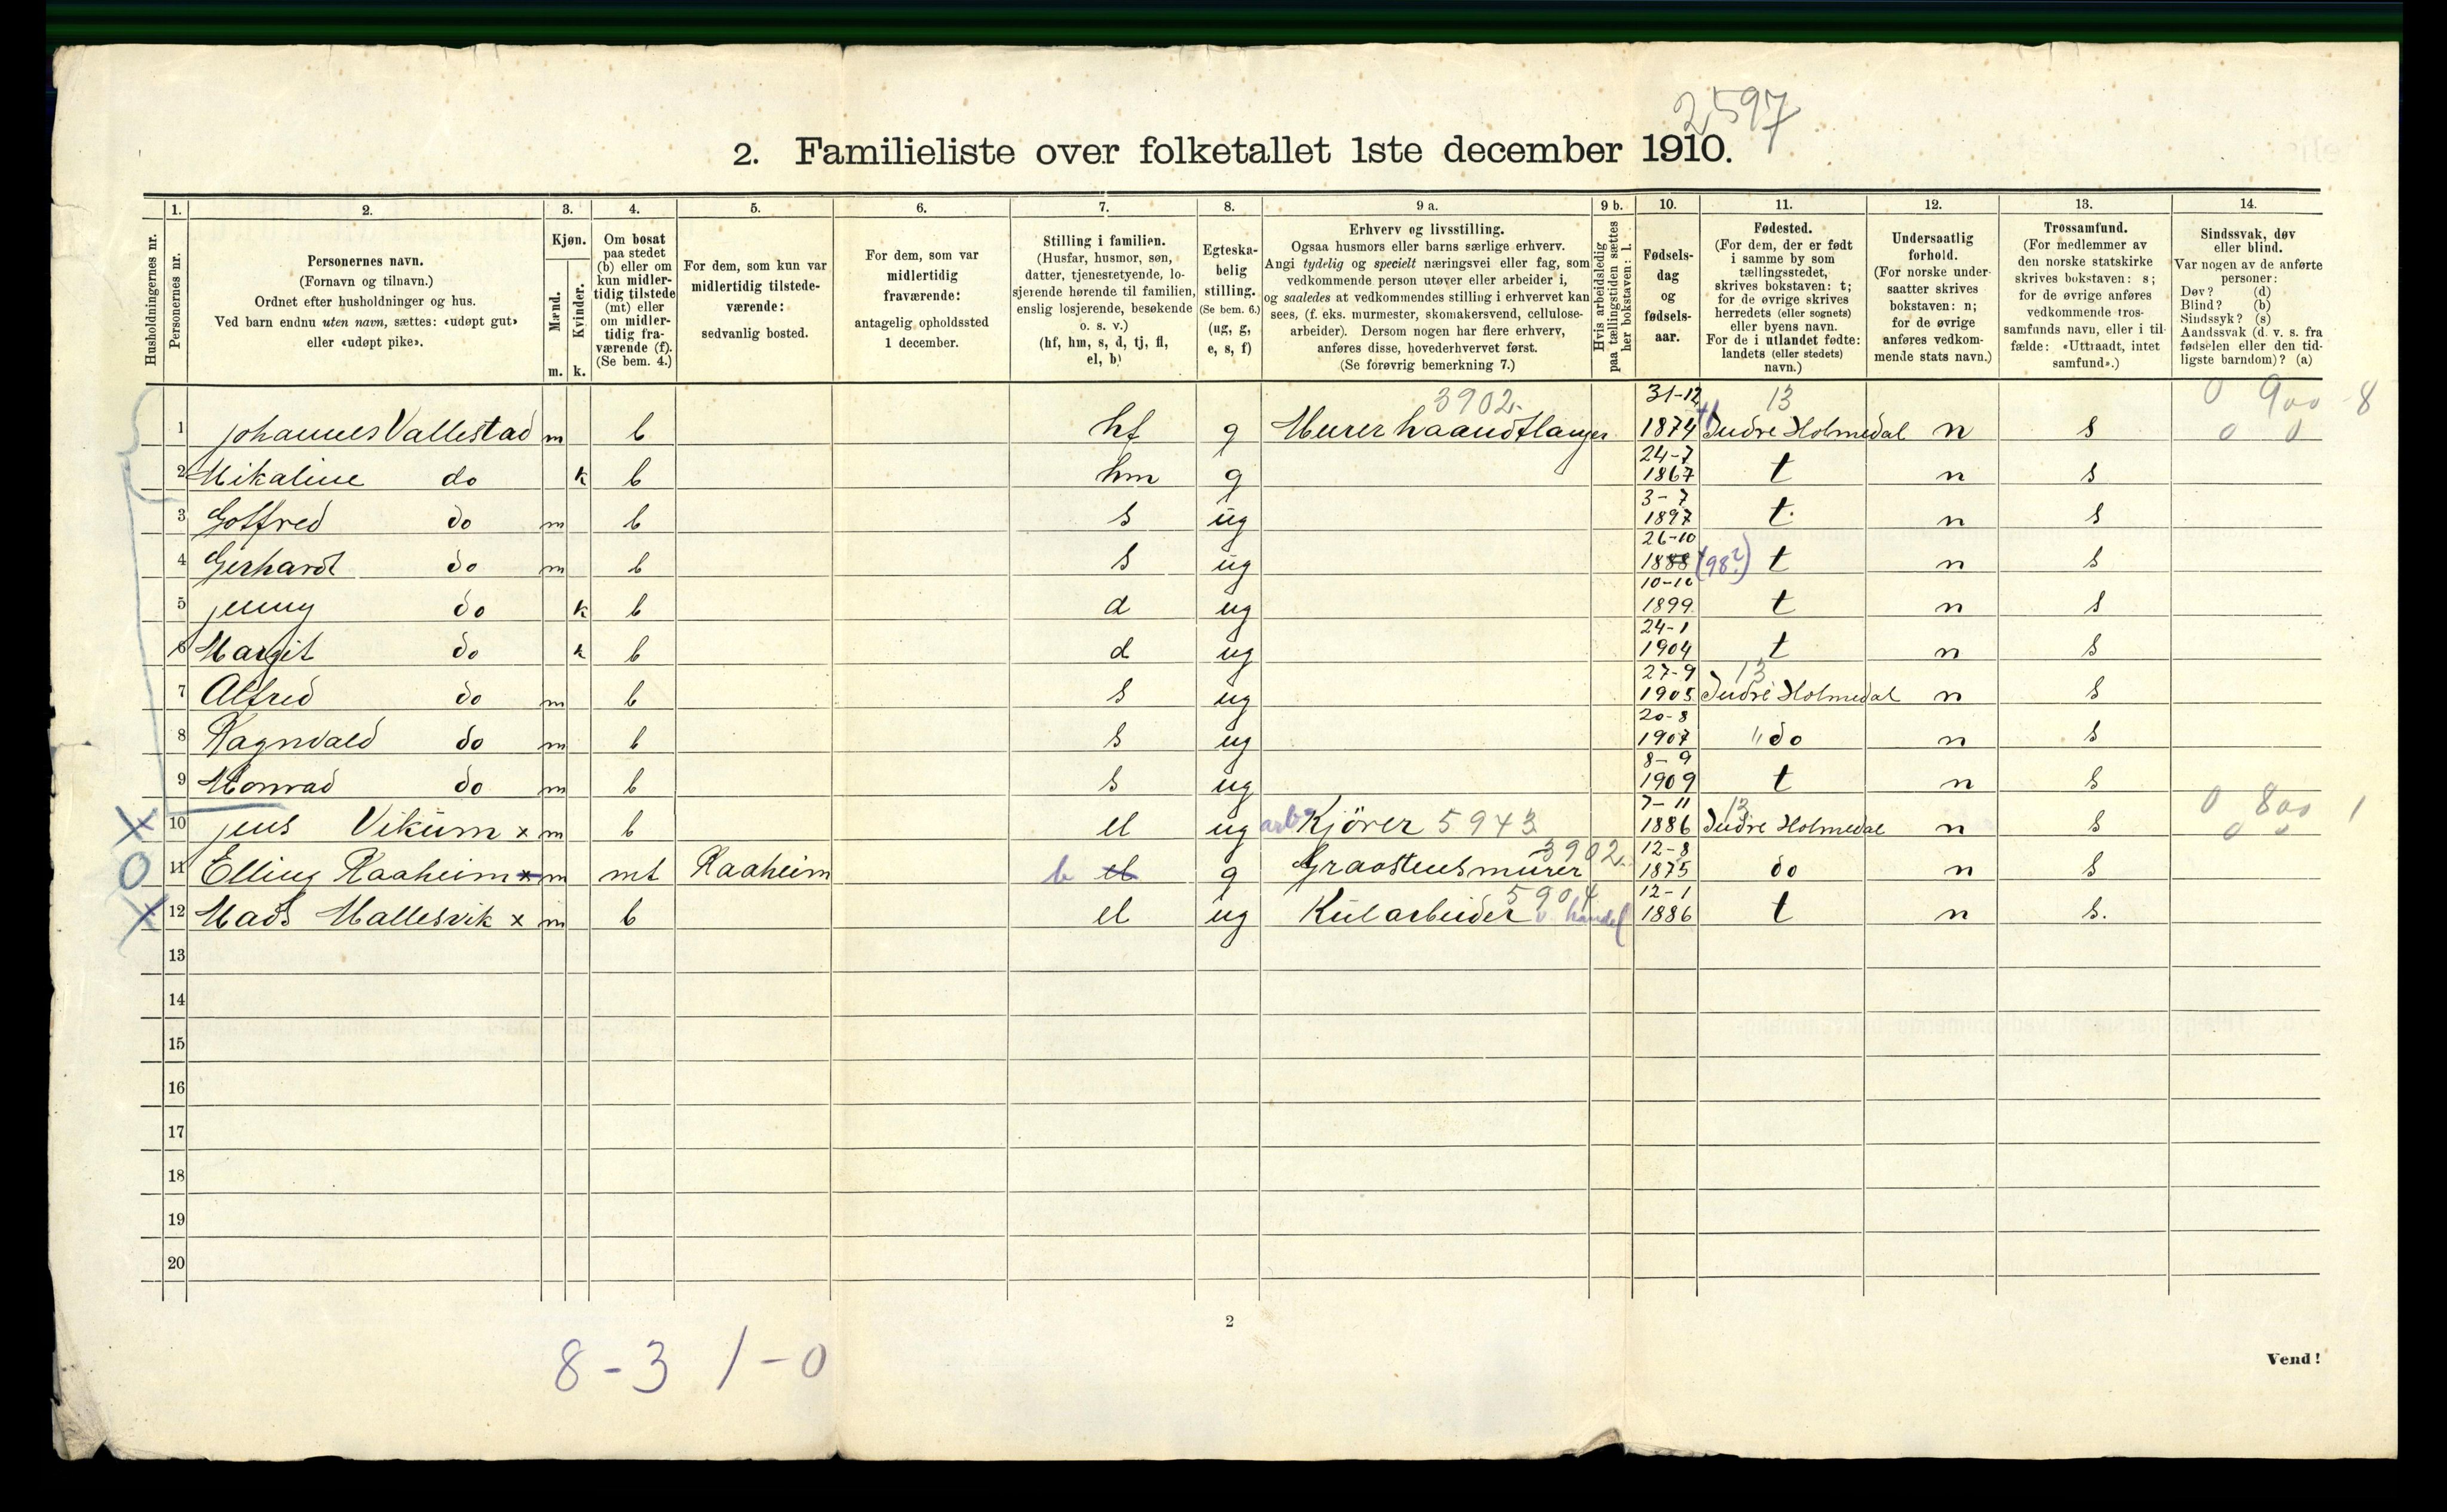 2597
2. Familieliste over folketallet 1ste december 1910.
1. 2. 3. 4. 5. 6. 7. 8. 9 a. 9 b. 10. 11. 12. 13. 14.
Husholdningernes nr.
Personernes nr.
Personernes navn.
(Fornavn og tilnavn.)
Ordnet efter husholdninger og hus.
Ved barn endnu uten navn, sættes: «udøpt gut»
eller «udøpt pike».
Kjøn.
Mænd.
Kvinder.
m. k.
Om bosat
paa stedet
(b) eller om
kun midler-
tidig tilstede
(mt) eller
om midler-
tidig fra-
værende (f).
(Se bem. 4.)
For dem, som kun var
midlertidig tilstede-
værende:
sedvanlig bosted.
For dem, som var
midlertidig
fraværende:
antagelig opholdssted
1 december.
Stilling i familien.
(Husfar, husmor, søn,
datter, tjenestetyende, lo-
sjerende hørende til familien,
enslig losjerende, besøkende
o. s. v.)
(hf, hm, s, d, tj, fl,
el, b)
Egteska-
belig
stilling.
(Se bem. 6.)
(ug, g,
e, s, f)
Erhverv og livsstilling.
Ogsaa husmors eller barns særlige erhverv.
Angi tydelig og specielt næringsvei eller fag, som
vedkommende person utøver eller arbeider i,
og saaledes at vedkommendes stilling i erhvervet kan
sees, (f. eks. murmester, skomakersvend, cellulose-
arbeider). Dersom nogen har flere erhverv,
anføres disse, hovederhvervet først.
(Se forøvrig bemerkning 7.)
Hvis arbeidsledig
paa tællingstiden sættes
her bokstaven: l.
Fødsels-
dag
og
fødsels-
aar.
Fødested.
(For dem, der er født
i samme by som
tællingsstedet,
skrives bokstaven: t;
for de øvrige skrives
herredets (eller sognets)
eller byens navn.
For de i utlandet fødte:
landets (eller stedets)
navn.)
Undersaatlig
forhold.
(For norske under-
saatter skrives
bokstaven: n;
for de øvrige
anføres vedkom-
mende stats navn.)
Trossamfund.
(For medlemmer av
den norske statskirke
skrives bokstaven: s;
for de øvrige anføres
vedkommende tros-
samfunds navn, eller i til-
fælde: «Uttraadt, intet
samfund».)
Sindssvak, døv
eller blind.
Var nogen av de anførte
personer:
Døv? (d)
Blind? (b)
Sindssyk? (s)
Aandssvak (d. v. s. fra
fødselen eller den tid-
ligste barndom)? (a)
3902. 31-12 13 0 900 8
1 Johannes Vallestad m b hf g Murer haandtlanger 1874 Indre Holmedal n s 0 0
24-7
2 Mikaline do k b hm g 1867 t n s
3-7
3 Gotfred do m b s ug 1897 t n s
26-10
4 Gerhardt do m b s ug 1888 (98?) t n s
10-10
5 Jenny do k b d ug 1899 t n s
24-1
6 Margit do k b d ug 1904 t n s
27-9 13
7 Alfred do m b s ug 1905 Indre Holmedal n s
20-8
8 Ragnvald do m b s ug 1907 " do n s
8-9
9 Monrad do m b s ug 1909 t n s
7-11 13 0 800 1
X 10 Jens Vikum x m b el ug arb. Kjörer 5943 1886 Indre Holmedal n s 0 0
3902. 12-8
O 11 Elling Raaheim x m mt Raaheim b el g Graastensmurer 1875 do n s
5904 12-1
X 12 Mads Mallesvik x m b el ug Kularbeider v. handel 1886 t n s.
13
14
15
16
17
18
19
20
2
8-3 1-0
Vend!